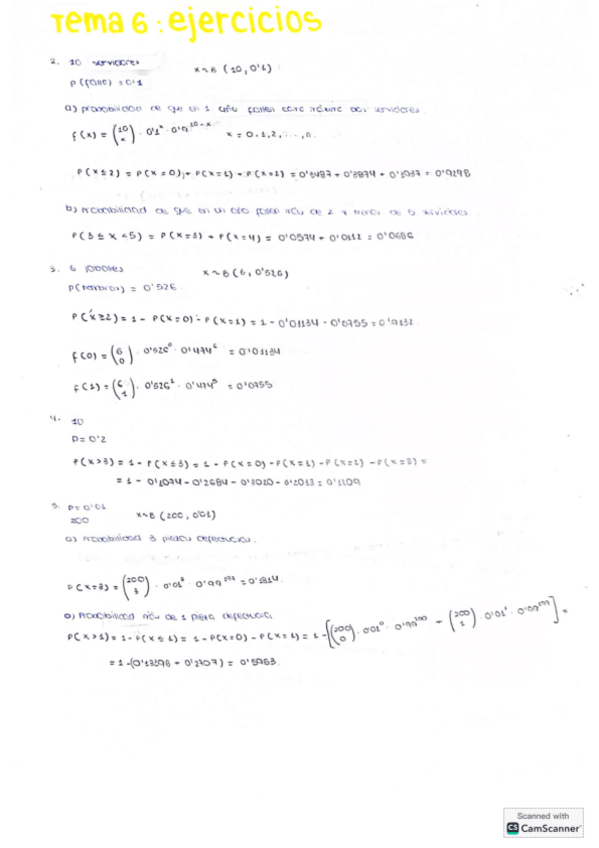 Tema 6: ejercicios
2. 10 servidores x~B (10, 0'1)
P(falle) = 0'1
a) probabilidad de que en 1 año fallen como máximo dos servidores.
f(x) = (10 x) · 0'1ˣ · 0'9¹⁰⁻ˣ x = 0, 1, 2, ..., n.
P(x≤2) = P(x=0) + P(x=1) + P(x=2) = 0'3487 + 0'3874 + 0'1937 = 0'9298
b) Probabilidad de que en un año fallen más de 2 y menos de 5 servidores
P(3 ≤ x < 5) = P(x=3) + P(x=4) = 0'0574 + 0'0112 = 0'0686
3. 6 x~B (6, 0'526)
P( ) = 0'526
P(x≥2) = 1 - P(x=0) - P(x=1) = 1 - 0'01134 - 0'0755 = 0'9132
f(0) = (6 0) · 0'526⁰ · 0'474⁶ = 0'01134
f(1) = (6 1) · 0'526¹ · 0'474⁵ = 0'0755
4. 10
p = 0'2
P(x>3) = 1 - P(x≤3) = 1 - P(x=0) - P(x=1) - P(x=2) - P(x=3) =
= 1 - 0'1074 - 0'2684 - 0'3020 - 0'2013 = 0'1209
9. P = 0'01
200 x~B (200, 0'01)
a) Probabilidad 3 piezas defectuosas.
P(x=3) = (200 3) · 0'01³ · 0'99¹⁹⁷ = 0'1814
b) Probabilidad más de 1 pieza defectuosa
P(x>1) = 1 - P(x≤1) = 1 - P(x=0) - P(x=1) = 1 - [(200 0) · 0'01⁰ · 0'99²⁰⁰ - (200 1) 0'01¹ · 0'99¹⁹⁹] =
= 1 - (0'13398 + 0'2707) = 0'5953.
Scanned with
CS CamScanner